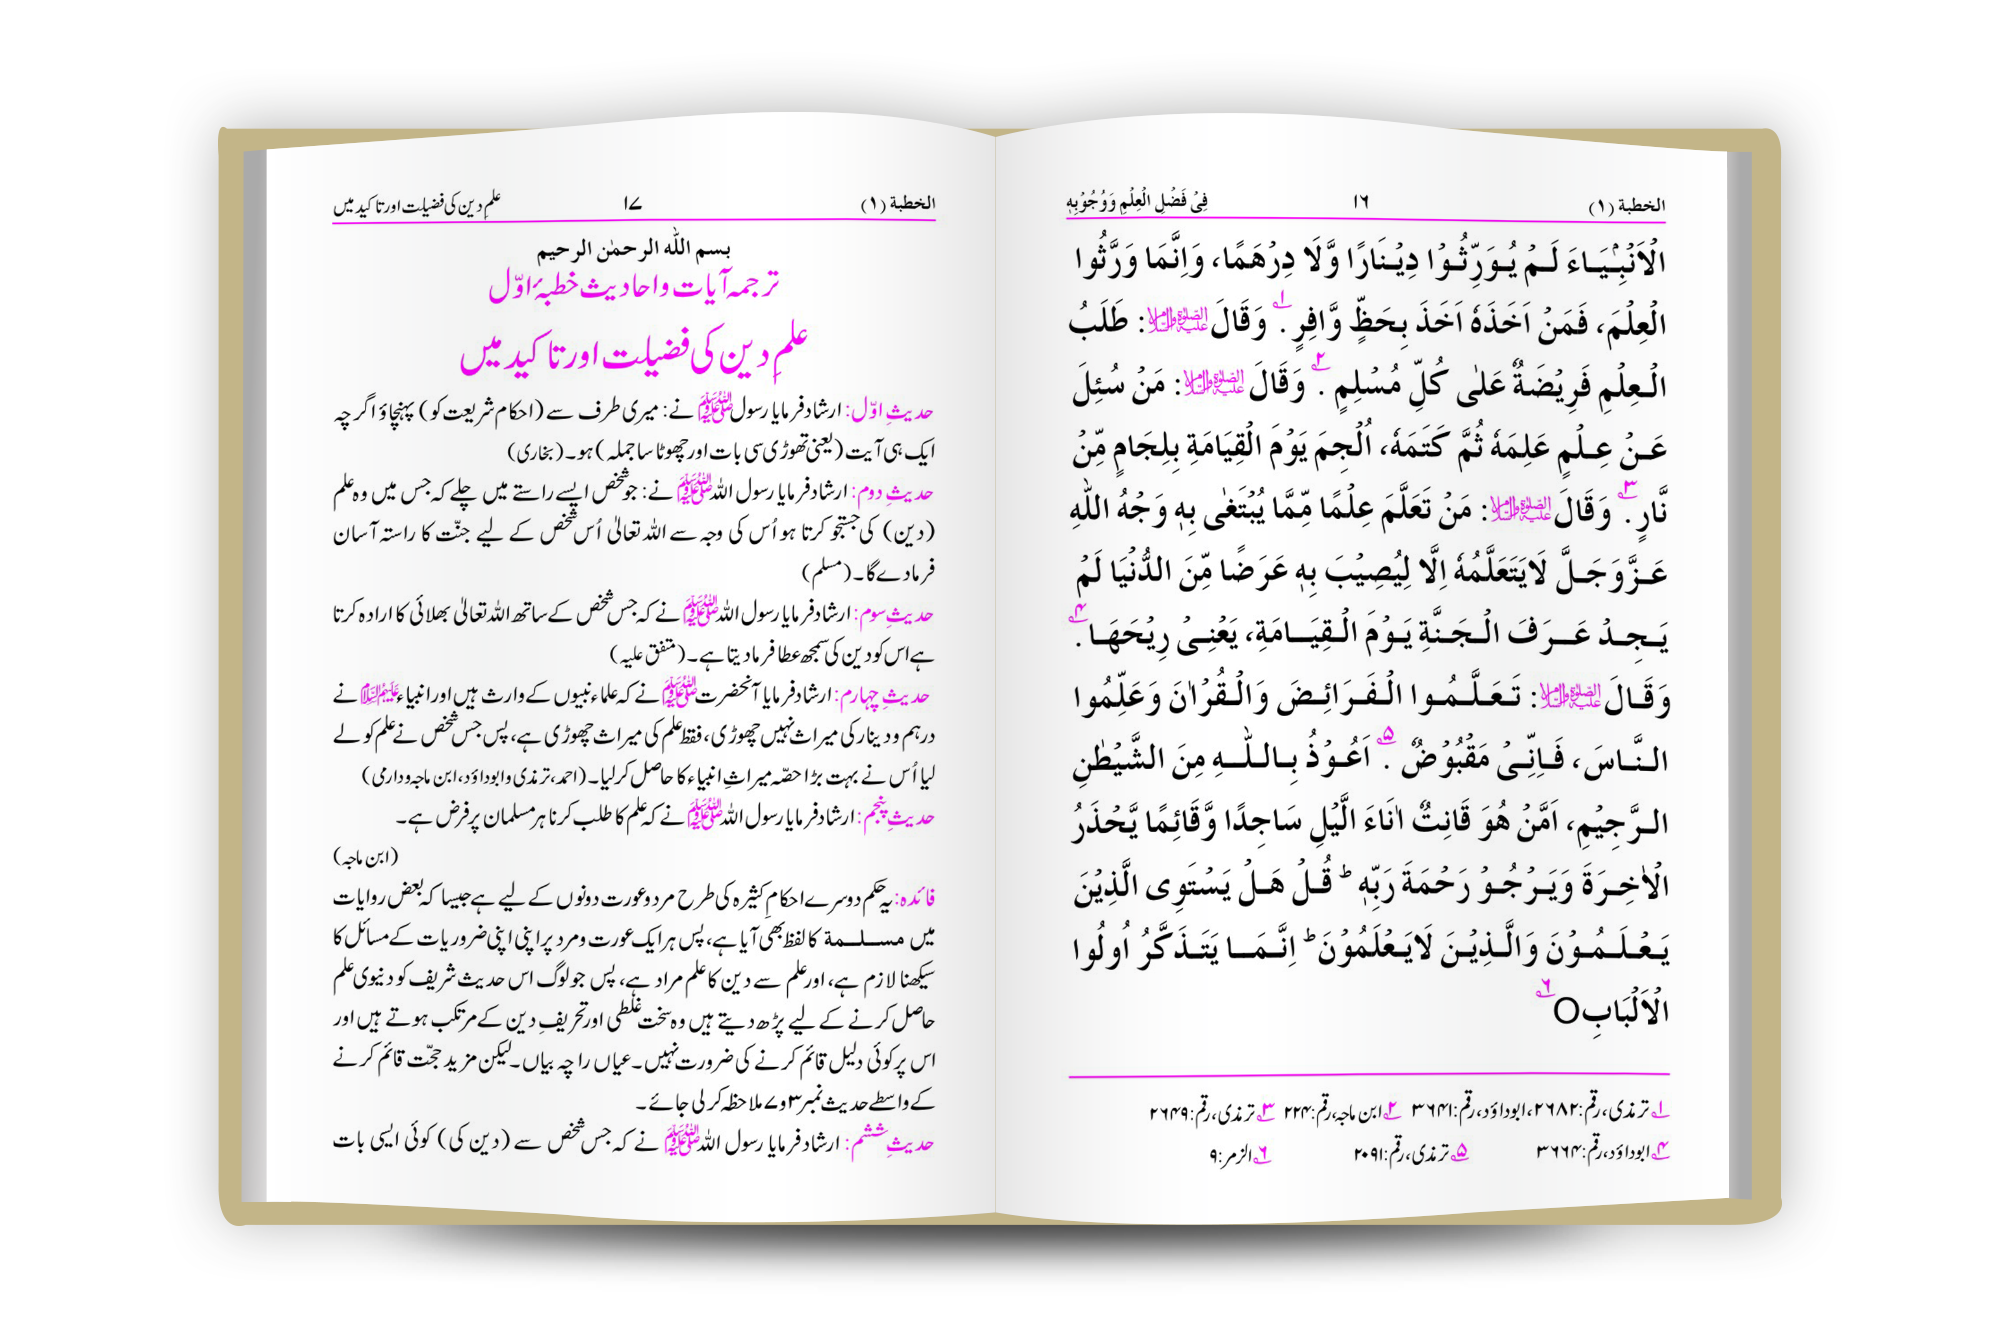 الخطبة (۱) ۱۶ فِیْ فَضْلِ الْعِلْمِ وَوُجُوْبِهٖ
الْاَنْبِيَاءَ لَمْ يُوَرِّثُوْا دِيْنَارًا وَّلَا دِرْهَمًا، وَاِنَّمَا وَرَّثُوا
الْعِلْمَ، فَمَنْ اَخَذَهٗ اَخَذَ بِحَظٍّ وَّافِرٍ . ۱؎ وَقَالَ علیہ الصلوٰۃ والسلام: طَلَبُ
الْعِلْمِ فَرِيْضَةٌ عَلٰى كُلِّ مُسْلِمٍ . ۲؎ وَقَالَ علیہ الصلوٰۃ والسلام: مَنْ سُئِلَ
عَنْ عِلْمٍ عَلِمَهٗ ثُمَّ كَتَمَهٗ، اُلْجِمَ يَوْمَ الْقِيَامَةِ بِلِجَامٍ مِّنْ
نَّارٍ . ۳؎ وَقَالَ علیہ الصلوٰۃ والسلام: مَنْ تَعَلَّمَ عِلْمًا مِّمَّا يُبْتَغٰى بِهٖ وَجْهُ اللّٰهِ
عَزَّوَجَلَّ لَايَتَعَلَّمُهٗ اِلَّا لِيُصِيْبَ بِهٖ عَرَضًا مِّنَ الدُّنْيَا لَمْ
يَجِدْ عَرَفَ الْجَنَّةِ يَوْمَ الْقِيَامَةِ، يَعْنِىْ رِيْحَهَا . ۴؎
وَقَالَ علیہ الصلوٰۃ والسلام: تَعَلَّمُوا الْفَرَائِضَ وَالْقُرْاٰنَ وَعَلِّمُوا
النَّاسَ، فَاِنِّىْ مَقْبُوْضٌ . ۵؎ اَعُوْذُ بِاللّٰهِ مِنَ الشَّيْطٰنِ
الرَّجِيْمِ، اَمَّنْ هُوَ قَانِتٌ اٰنَاءَ الَّيْلِ سَاجِدًا وَّقَائِمًا يَّحْذَرُ
الْاٰخِرَةَ وَيَرْجُوْ رَحْمَةَ رَبِّهٖ ؕ قُلْ هَلْ يَسْتَوِى الَّذِيْنَ
يَعْلَمُوْنَ وَالَّذِيْنَ لَايَعْلَمُوْنَ ؕ اِنَّمَا يَتَذَكَّرُ اُولُوا
الْاَلْبَابِ O ۶؎
۱؎ ترمذی، رقم:۲۶۸۲، ابوداؤد، رقم:۳۶۴۱ ۲؎ ابن ماجہ، رقم:۲۲۴ ۳؎ ترمذی، رقم:۲۶۴۹
۴؎ ابوداؤد، رقم:۳۶۶۴ ۵؎ ترمذی، رقم:۲۰۹۱ ۶؎ الزمر:۹
الخطبة (۱) ۱۷ علمِ دین کی فضیلت اور تاکید میں
بسم اللّٰه الرحمٰن الرحيم
ترجمہ آیات واحادیث خطبۂ اوّل
علمِ دین کی فضیلت اور تاکید میں
حدیثِ اوّل: ارشاد فرمایا رسول ﷺ نے: میری طرف سے (احکام شریعت کو) پہنچاؤ اگرچہ
ایک ہی آیت (یعنی تھوڑی سی بات اور چھوٹا سا جملہ) ہو۔ (بخاری)
حدیثِ دوم: ارشاد فرمایا رسول اللہ ﷺ نے: جو شخص ایسے راستے میں چلے کہ جس میں وہ علم
(دین) کی جستجو کرتا ہو اُس کی وجہ سے اللہ تعالیٰ اُس شخص کے لیے جنّت کا راستہ آسان
فرمادے گا۔ (مسلم)
حدیثِ سوم: ارشاد فرمایا رسول اللہ ﷺ نے کہ جس شخص کے ساتھ اللہ تعالیٰ بھلائی کا ارادہ کرتا
ہے اس کو دین کی سمجھ عطا فرما دیتا ہے۔ (متفق علیہ)
حدیثِ چہارم: ارشاد فرمایا آنحضرت ﷺ نے کہ علماء نبیوں کے وارث ہیں اور انبیاء علیہم السلام نے
درہم و دینار کی میراث نہیں چھوڑی، فقط علم کی میراث چھوڑی ہے، پس جس شخص نے علم کو لے
لیا اُس نے بہت بڑا حصّہ میراثِ انبیاء کا حاصل کرلیا۔ (احمد، ترمذی وابوداؤد، ابن ماجہ ودارمی)
حدیثِ پنجم: ارشاد فرمایا رسول اللہ ﷺ نے کہ علم کا طلب کرنا ہر مسلمان پر فرض ہے۔
(ابن ماجہ)
فائدہ: یہ حکم دوسرے احکامِ کثیرہ کی طرح مرد و عورت دونوں کے لیے ہے جیسا کہ بعض روایات
میں مسلمة کا لفظ بھی آیا ہے، پس ہر ایک عورت و مرد پر اپنی اپنی ضروریات کے مسائل کا
سیکھنا لازم ہے، اور علم سے دین کا علم مراد ہے، پس جو لوگ اس حدیث شریف کو دنیوی علم
حاصل کرنے کے لیے پڑھ دیتے ہیں وہ سخت غلطی اور تحریفِ دین کے مرتکب ہوتے ہیں اور
اس پر کوئی دلیل قائم کرنے کی ضرورت نہیں۔ عیاں را چہ بیاں۔ لیکن مزید حجّت قائم کرنے
کے واسطے حدیث نمبر ۳ و ۷ ملاحظہ کرلی جائے۔
حدیثِ ششم: ارشاد فرمایا رسول اللہ ﷺ نے کہ جس شخص سے (دین کی) کوئی ایسی بات